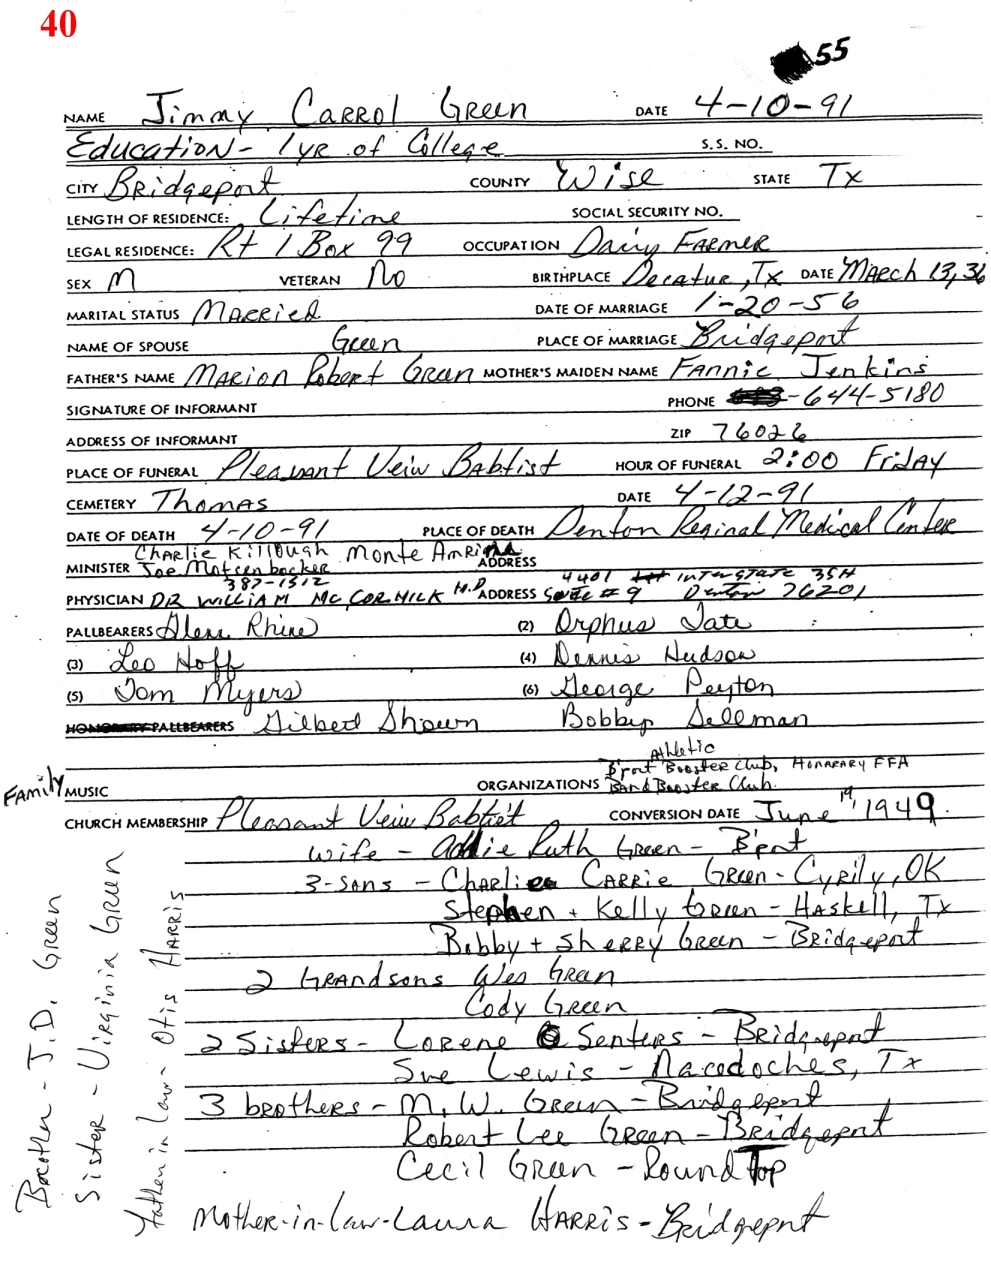 40
55
NAME Jimmy Carrol Green DATE 4-10-91
Education - 1 yr of College S.S. NO.
CITY Bridgeport COUNTY Wise STATE Tx
LENGTH OF RESIDENCE: Lifetime SOCIAL SECURITY NO.
LEGAL RESIDENCE: Rt 1 Box 99 OCCUPATION Dairy Farmer
SEX M VETERAN No BIRTHPLACE Decatur, Tx DATE March 13, 36
MARITAL STATUS Married DATE OF MARRIAGE 1-20-56
NAME OF SPOUSE Green PLACE OF MARRIAGE Bridgeport
FATHER'S NAME Marion Robert Green MOTHER'S MAIDEN NAME Fannie Jenkins
SIGNATURE OF INFORMANT PHONE -644-5180
ADDRESS OF INFORMANT ZIP 76026
PLACE OF FUNERAL Pleasant Veiw Babtist HOUR OF FUNERAL 2:00 Friday
CEMETERY Thomas DATE 4-12-91
DATE OF DEATH 4-10-91 PLACE OF DEATH Denton Reginal Medical Center
Charlie Killough Monte
MINISTER Joe Motsenbocker ADDRESS
387-1512 4401 Interstate 35N
PHYSICIAN DR William McCormick M.D ADDRESS Suite #9 Denton 76201
PALLBEARERS Glenn Rhine (2) Orphus Tate
(3) Leo Hoff (4) Dennis Hudson
(5) Tom Myers (6) George Peyton
HONORARY PALLBEARERS Gilbert Shown Bobby Sellman
Athletic
B'port Booster Club, Honarary FFA
Family MUSIC ORGANIZATIONS Band Booster Club.
CHURCH MEMBERSHIP Pleasant Veiw Babtist CONVERSION DATE June 19, 1949.
wife - Addie Ruth Green - B'port
3-sons - Charlie Carrie Green - Cyrily, OK
Stephen + Kelly Green - Haskell, Tx
Bobby + Sherry Green - Bridgeport
2 Grandsons Wes Green
Cody Green
2 Sisters - Lorene Senters - Bridgeport
Sue Lewis - Nacodoches, Tx
3 brothers - M. W. Green - Bridgeport
Robert Lee Green - Bridgeport
Cecil Green - Round Top
Mother-in-law - Laura Harris - Bridgeport
Brother - J.D. Green
Sister - Virginia Green
father in Law - Otis Harris